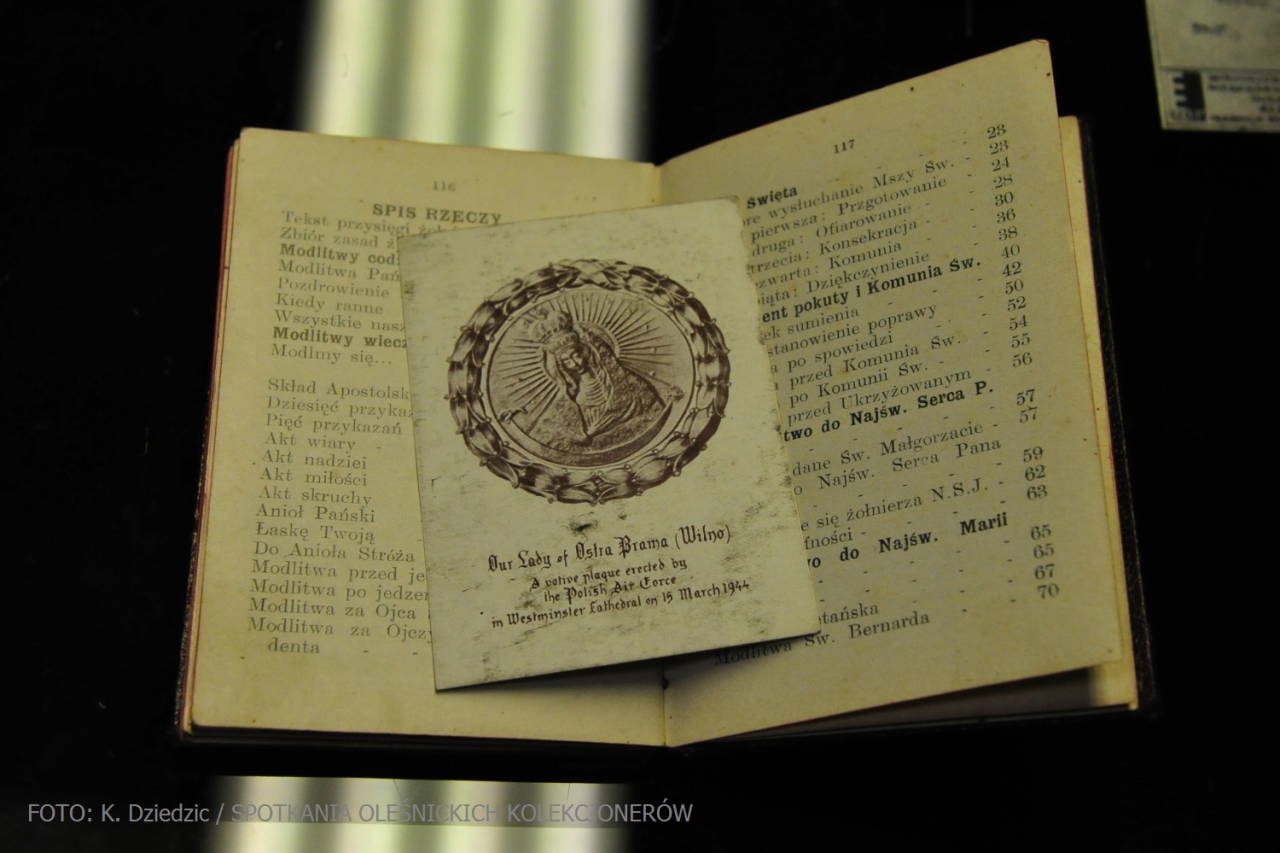 116
SPIS RZECZY
Tekst przysięgi
Zbiór zasad
Modlitwy
Modlitwa
Pozdrowienie
Kiedy ranne
Wszystkie
Modlitwy
Modlmy się...
Skład
Dziesięć
Pięć przykazań
Akt wiary
Akt nadziei
Akt miłości
Akt skruchy
Anioł Pański
Łaskę Twoją
Do Anioła Stróża
Modlitwa przed
Modlitwa po
Modlitwa za Ojca
Modlitwa za
denta - -
Our Lady of Ostra Brama (Wilno)
A votive plaque erected by
the Polish Air Force
in Westminster Cathedral on 15 March 1944
117
Święta - - - 23
wysłuchanie Mszy Św. - 23
pierwsza: Przgotowanie - 24
druga: Ofiarowanie - - 28
trzecia: Konsekracja - 30
czwarta: Komunia - - 36
piąta: Dziękczynienie - 38
pokuty i Komunia Św. 40
sumienia - - - 42
poprawy - 50
po spowiedzi - - 52
przed Komunia Św. - 54
po Komunii Św. - - 55
przed Ukrzyżowanym - 56
do Najśw. Serca P.
- - - 57
dane Św. Małgorzacie - 57
Najśw. Serca Pana
- - - 59
się żołnierza N.S.J. - 62
- - - 63
do Najśw. Marii
- - - 65
- - - 65
- - - 67
Modlitwa Św. Bernarda - - 70
FOTO: K. Dziedzic / SPOTKANIA OLEŚNICKICH KOLEKCJONERÓW